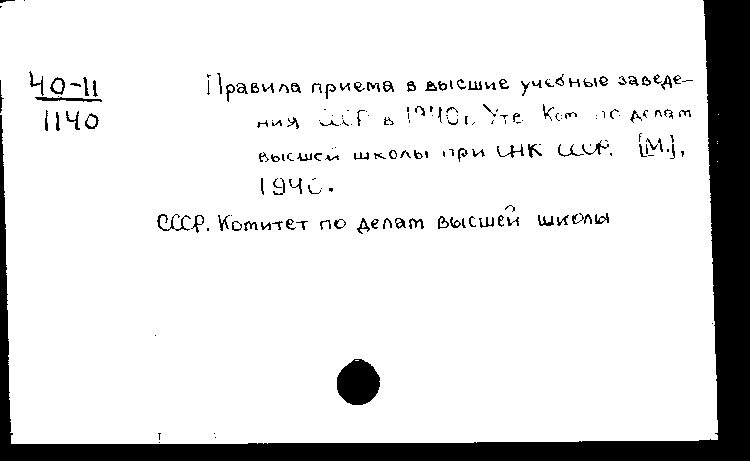 40-11
1140
Правила приема в высшие учебные заведе-
ния СССР в 1940 г. Утв Ком по делам
высшей школы при СНК СССР. [М.],
1940.
СССР. Комитет по делам высшей школы